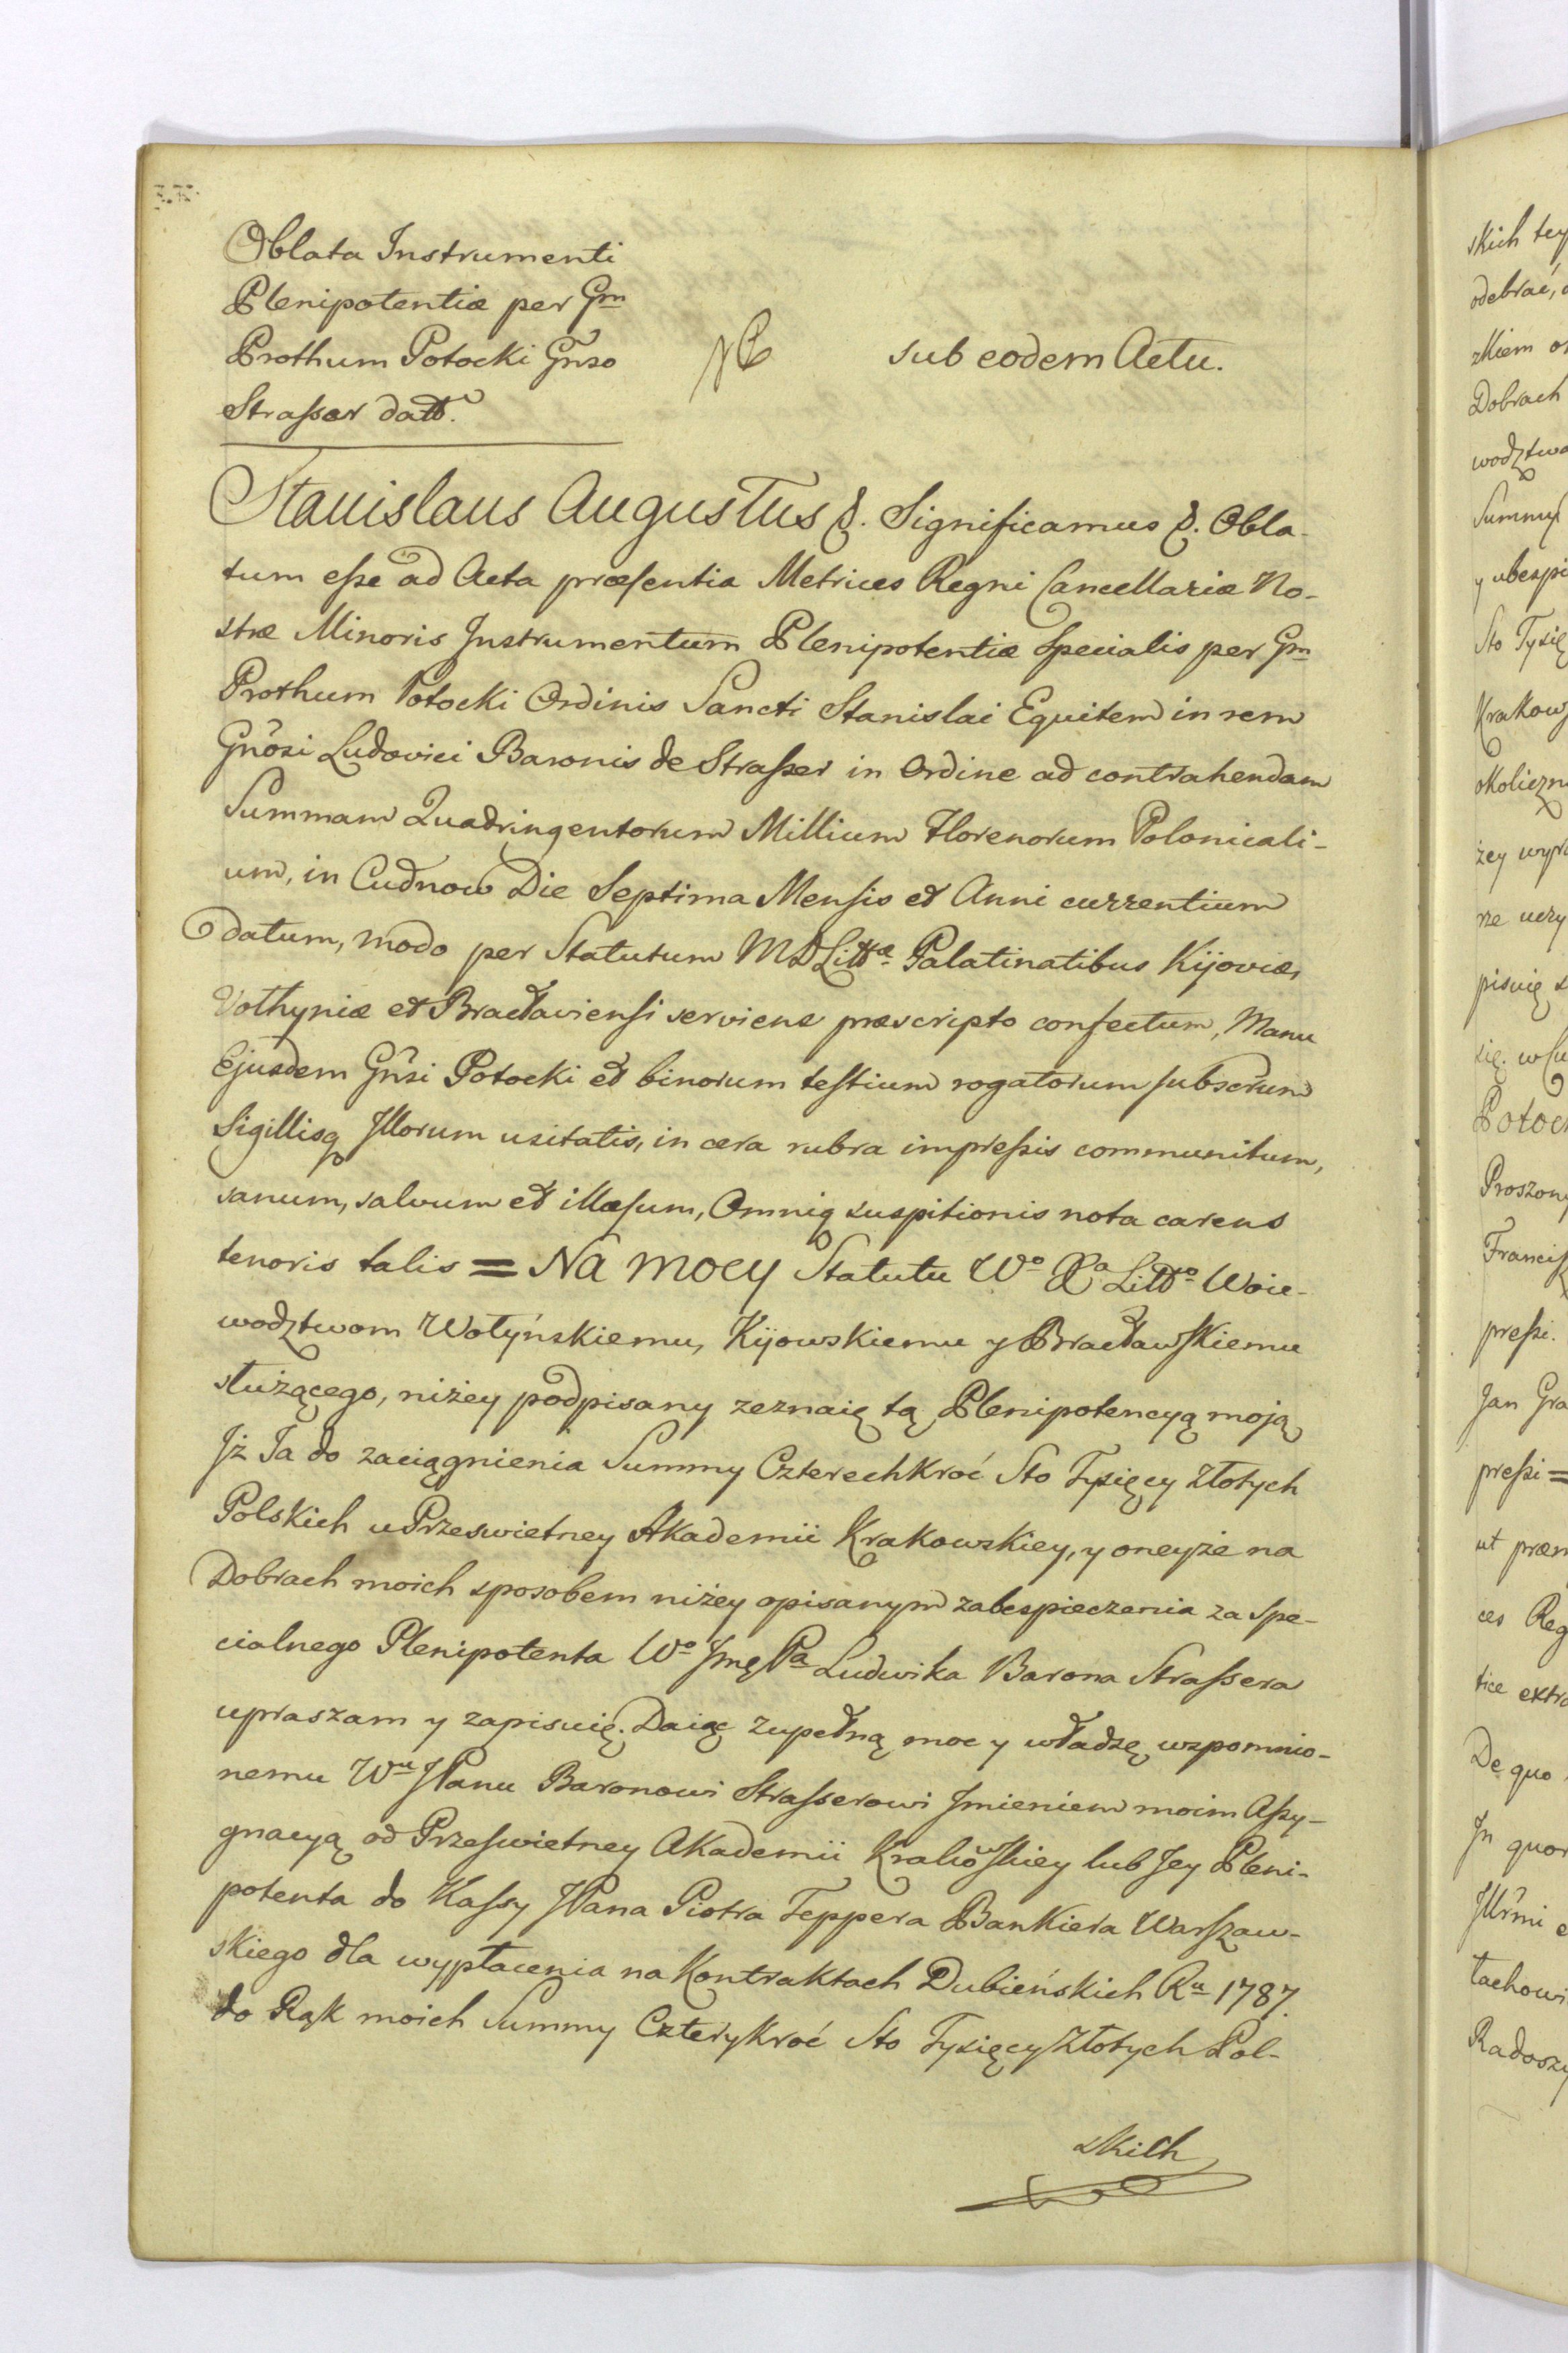 Oblata Instrumenti
Plenipotentiæ per Gm
Prothum Potocki Gnso
Strasser datt.
sub eodem Actu.
Stanislaus Augustus &. Significamus &. Obla-
tum esse ad Acta præsentia Metrices Regni Cancellariæ No-
stræ Minoris Instrumentum Plenipotentiæ Specialis per Gm
Prothum Potocki Ordinis Sancti Stanislai Equitem in rem
Gnosi Ludovici Baronis de Strasser in Ordine ad contrahendam
Summam Quadringentorum Millium Florenorum Polonicali-
um, in Cudnow Die Septima Mensis et Anni currentium
datum, modo per Statutum MDLittæ Palatinatibus Kijoviæ,
Volhyniæ et Bracłaviensi serviens præscripto confectum, Manu
Ejusdem Gnsi Potocki et binorum testium rogatorum subscrum
Sigillisq Illorum usitatis, in cera rubra impressis communitum,
sanum, salvum et illæsum, Omniq suspitionis nota carens
tenoris talis = Na mocy Statutu Wo Xa Litto Woie-
wodztwom Wołyńskiemu, Kijowskiemu y Bracławskiemu
służącego, niżey podpisany zeznaię tą Plenipotencyą moją
Iż Ja do zaciągnienia Summy Czterechkroć Sto Tysięcy Złotych
Polskich u Przeswietney Akademii Krakowskiey, y oneyże na
Dobrach moich sposobem niżey opisanym zabespieczenia za Spe-
cialnego Plenipotenta Wo Jmę Pa Ludwika Barona Strassera
upraszam y zapisuię. Daiąc zupełną moc y władzę wzpomnio-
nemu Wu JPanu Baronowi Strasserowi Imieniem moim Assy-
gnacyą od Przeswietney Akademii Krakoskiey lub Jey Pleni-
potenta do Kassy JPana Piotra Teppera Bankiera Warszaw-
skiego dla wypłacenia na Kontraktach Dubieńskich Ru 1787.
do Rąk moich Summy Czterykroć Sto Tysięcy Złotych Pol-
skich
skich tey
odebrać,
Dobrach
Summy
y ubespi
Sto Tysię
Krakow
okoliczn
żey wyra
pisuię
Potoc
Franciss
pressi.
Jan Gra
pressi =
ut præm
ces Reg
tice extra
De quo
In quor